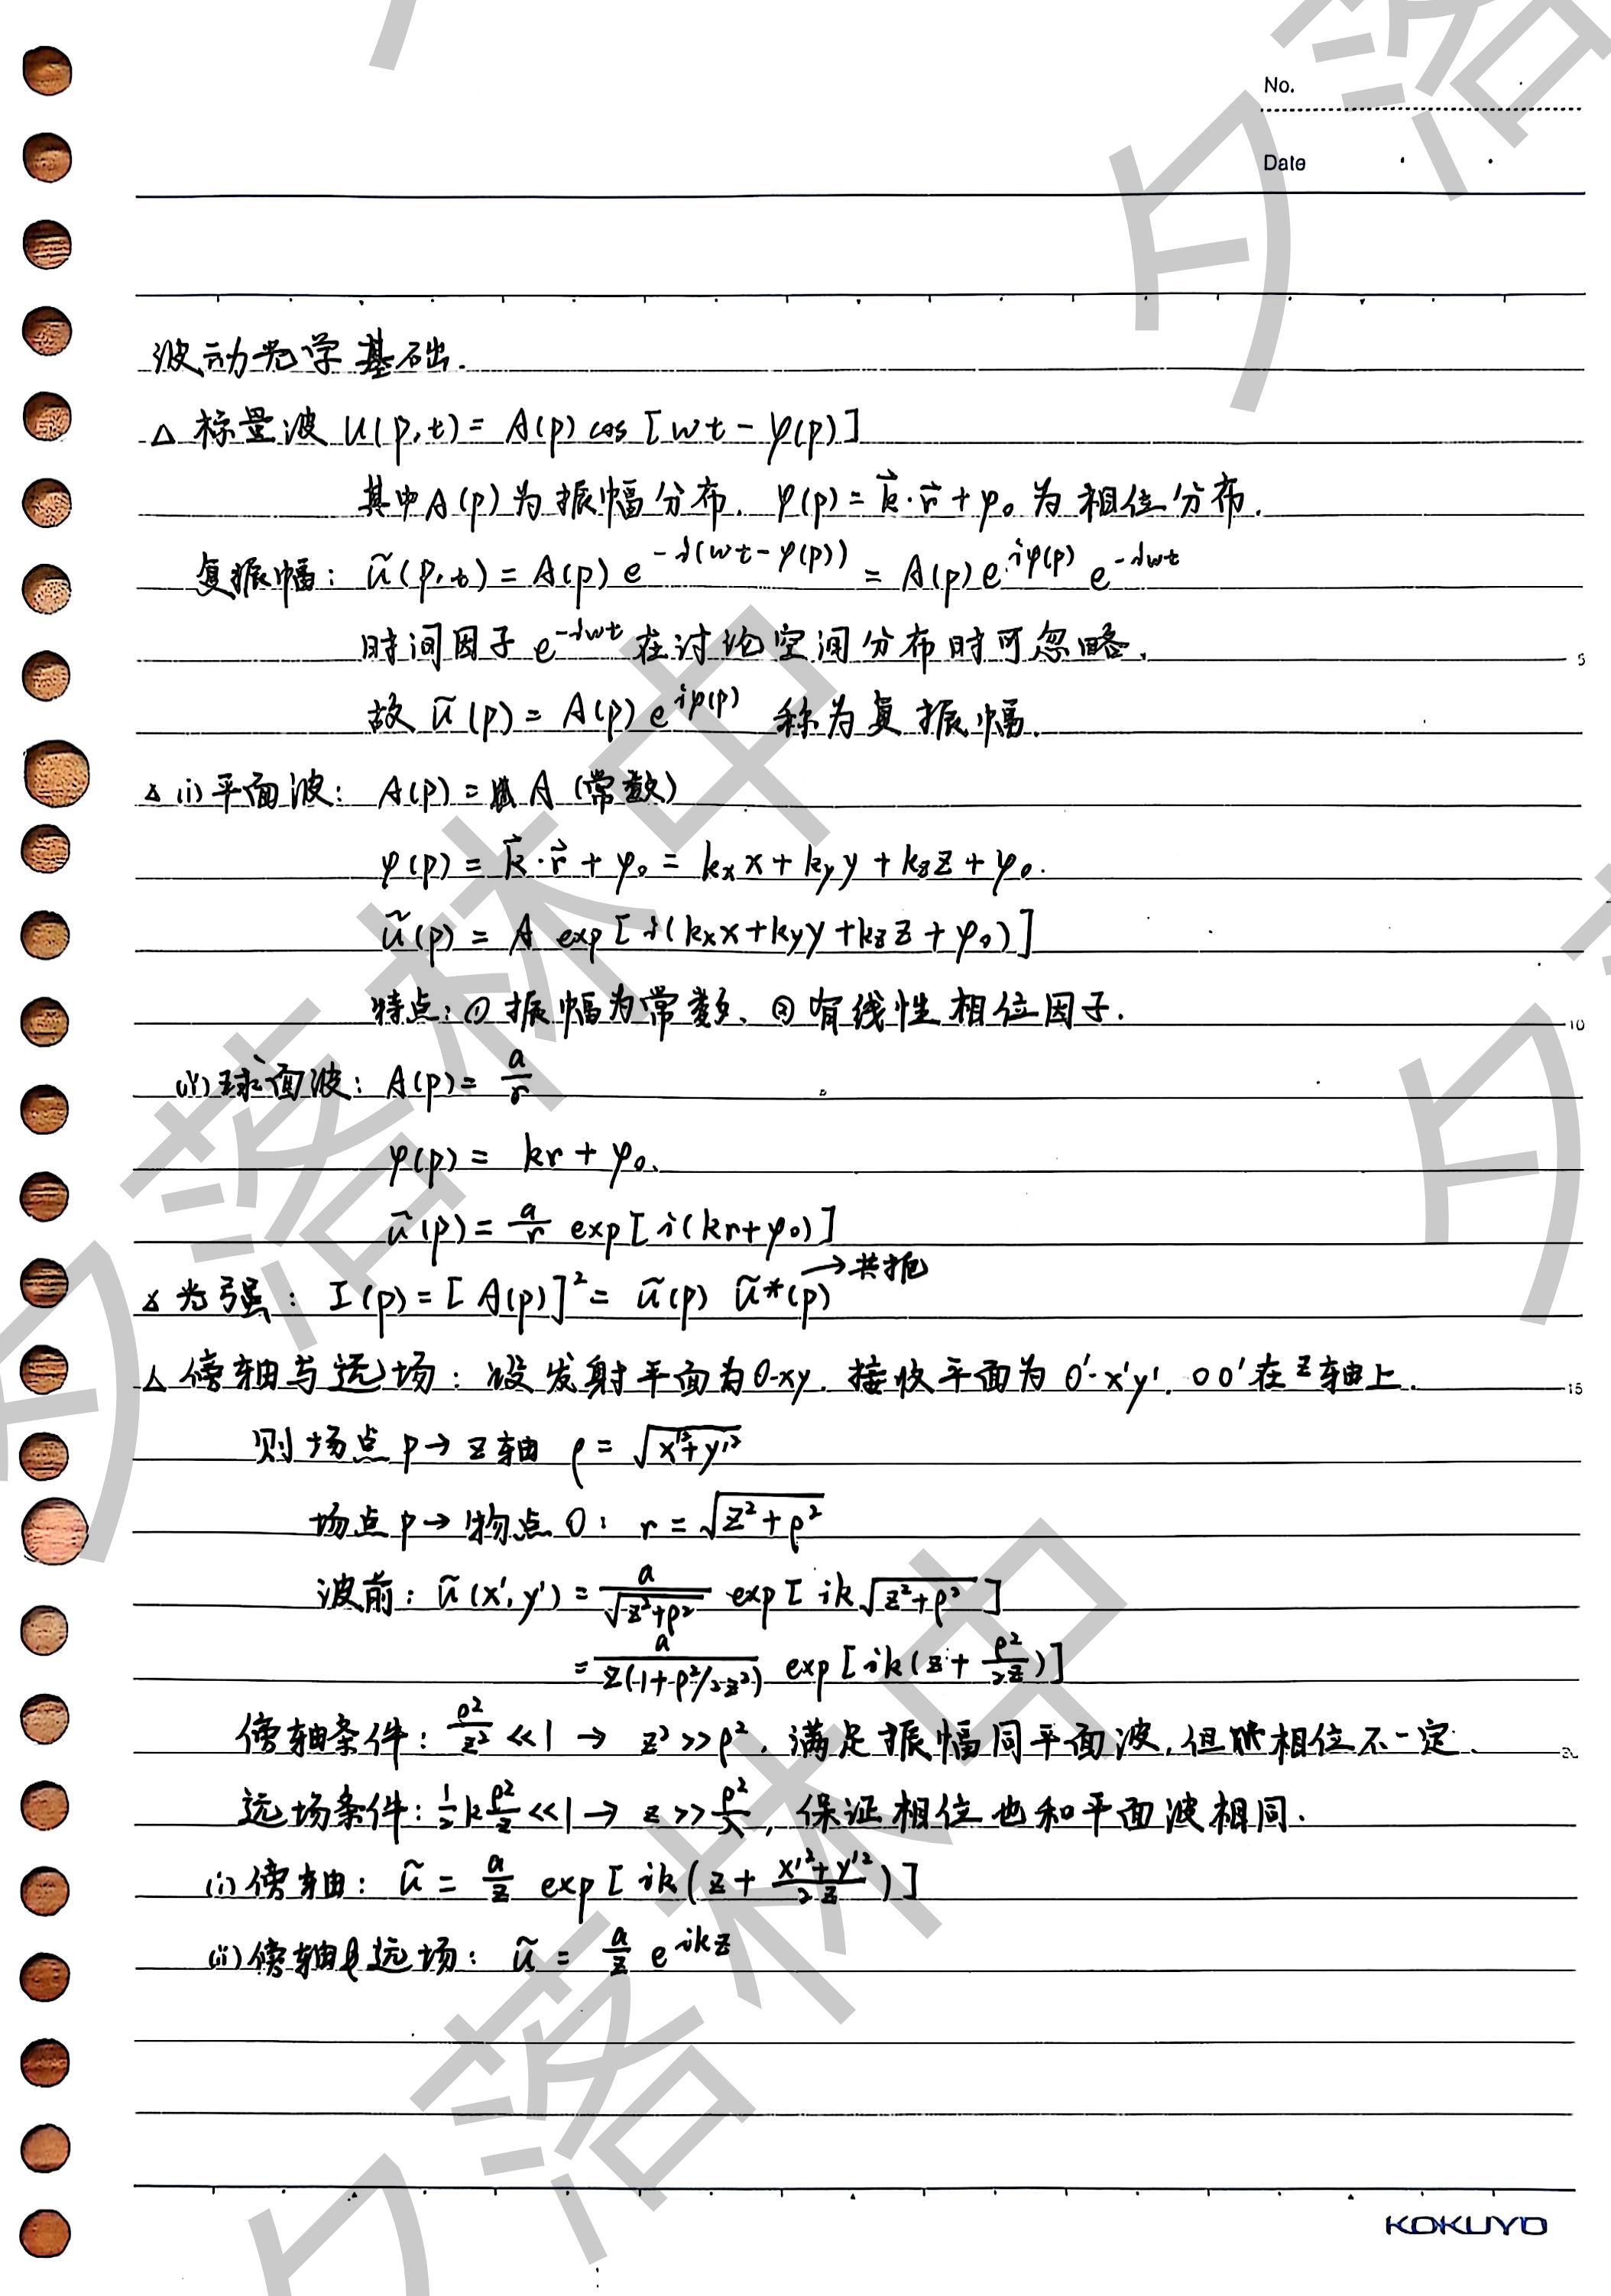 No.
Date
波动光学基础.
△ 标量波 U(P,t) = A(p) cos [wt - φ(p)]
其中A(p)为振幅分布. φ(p) = k⃗·r⃗ + φ₀ 为相位分布.
复振幅: ũ(P,t) = A(p) e^{-i(wt-φ(p))} = A(p) e^{iφ(p)} e^{-iwt}
时间因子 e^{-iwt} 在讨论空间分布时可忽略.
5
故 ũ(p) = A(p) e^{iφ(p)} 称为复振幅.
△ (i) 平面波: A(p) = A (常数)
φ(p) = k⃗·r⃗ + φ₀ = kₓx + k_y y + k_z z + φ₀.
ũ(p) = A exp [i(kₓx + k_y y + k_z z + φ₀)]
特点: ① 振幅为常数、② 有线性相位因子.
10
(ii) 球面波: A(p) = a/r
φ(p) = kr + φ₀.
ũ(p) = a/r exp[i(kr+φ₀)]
△ 光强: I(p) = [A(p)]² = ũ(p) ũ*(p) →共轭
△ 傍轴与远场: 设发射平面为O-xy. 接收平面为 O'-x'y'. OO'在z轴上.
15
则场点 p → z轴 ρ = √(x'²+y'²)
场点 p → 物点 O: r = √(z²+ρ²)
波前: ũ(x',y') = a/√(z²+ρ²) exp [ik√(z²+ρ²)]
= a/(z(1+ρ²/2z²)) exp [ik(z + ρ²/2z)]
傍轴条件: ρ²/z² ≪ 1 → z² ≫ ρ². 满足振幅同平面波, 但相位不一定.
20
远场条件: ½k ρ²/z ≪ 1 → z ≫ ρ²/λ, 保证相位也和平面波相同.
(i) 傍轴: ũ = a/z exp [ik(z + (x'²+y'²)/2z)]
(ii) 傍轴&远场: ũ = a/z e^{ikz}
KOKUYO
夕落林中
夕落林中
夕落
夕